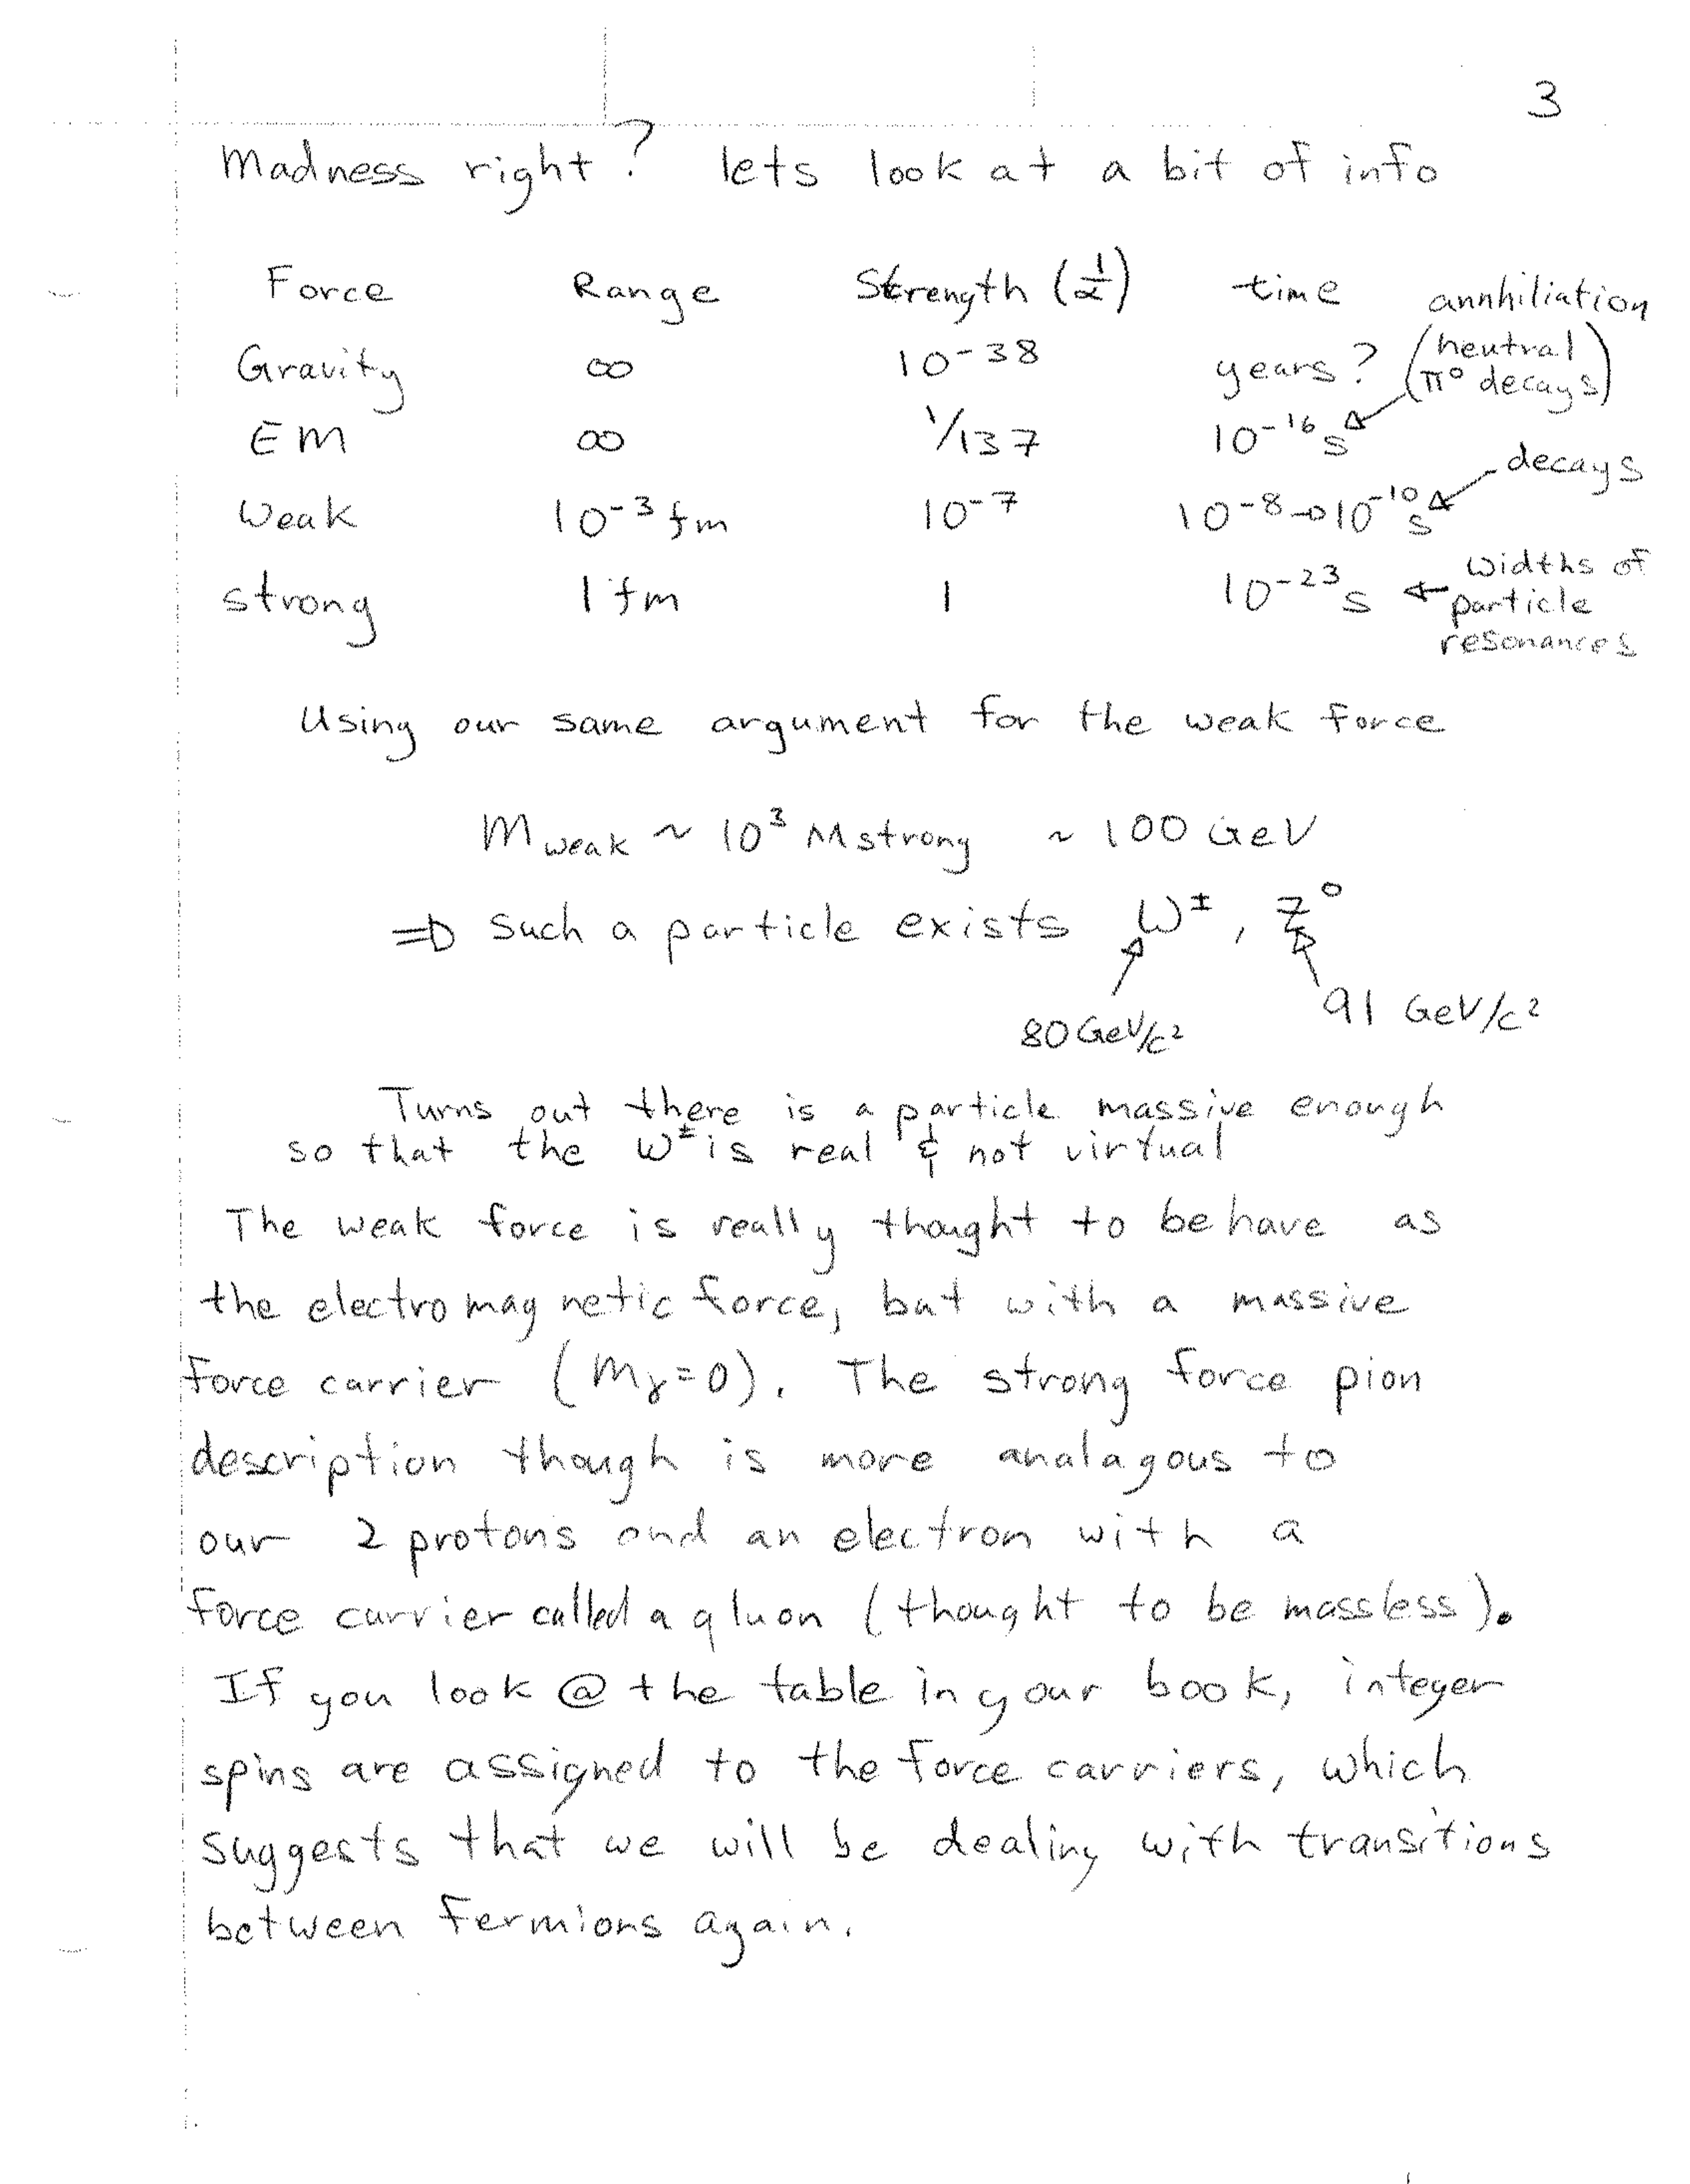 3
Madness right? lets look at a bit of info
Force Range Strength (1/α) time annhiliation
Gravity ∞ 10⁻³⁸ years? (neutral π⁰ decays)
EM ∞ 1/137 10⁻¹⁶ s
Weak 10⁻³ fm 10⁻⁷ 10⁻⁸→10⁻¹⁰ s decays
strong 1 fm 1 10⁻²³ s ← widths of particle resonances
Using our same argument for the weak force
M weak ~ 10³ M strong ~ 100 GeV
⇒ such a particle exists W±, Z⁰
80 GeV/c² 91 GeV/c²
Turns out there is a particle massive enough
so that the W± is real & not virtual
The weak force is really thought to behave as
the electromagnetic force, but with a massive
force carrier (Mγ=0). The strong force pion
description though is more analagous to
our 2 protons and an electron with a
force carrier called a gluon (thought to be massless).
If you look @ the table in your book, integer
spins are assigned to the force carriers, which
suggests that we will be dealing with transitions
between fermions again.